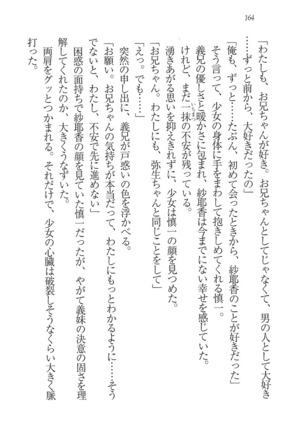 164
「わたしも、お兄ちゃんが好き。お兄ちゃんとしてじゃなくて、男の人として大好き
……ずっと前から、大好きだったの」
「俺も、ずっと……たぶん、初めて会ったときから、紗耶香のことが好きだった」
そう言って、少女の身体に手をまわして抱きしめてくる慎一。
義兄の優しさと暖かさに包まれ、紗耶香は今までにない幸せを感じていた。
けれど、まだ一抹の不安が残っている。
湧きあがる思いを抑えきれずに、少女は慎一の顔を見つめた。
「お兄ちゃん。わたしにも、弥生ちゃんと同じことをして」
「えっ。でも……」
突然の申し出に、義兄が戸惑いの色を浮かべる。
「お願い。お兄ちゃんの気持ちが本当だって、わたしにもっとわかるように……そう
でないと、わたし、不安で先に進めない」
困惑の面持ちで紗耶香の顔を見ていた慎一だったが、やがて義妹の決意の固さを理
解してくれたのか、大きくうなずいた。
両肩をグッとつかまれる。それだけで、少女の心臓は破裂しそうなくらい大きく脈
打った。